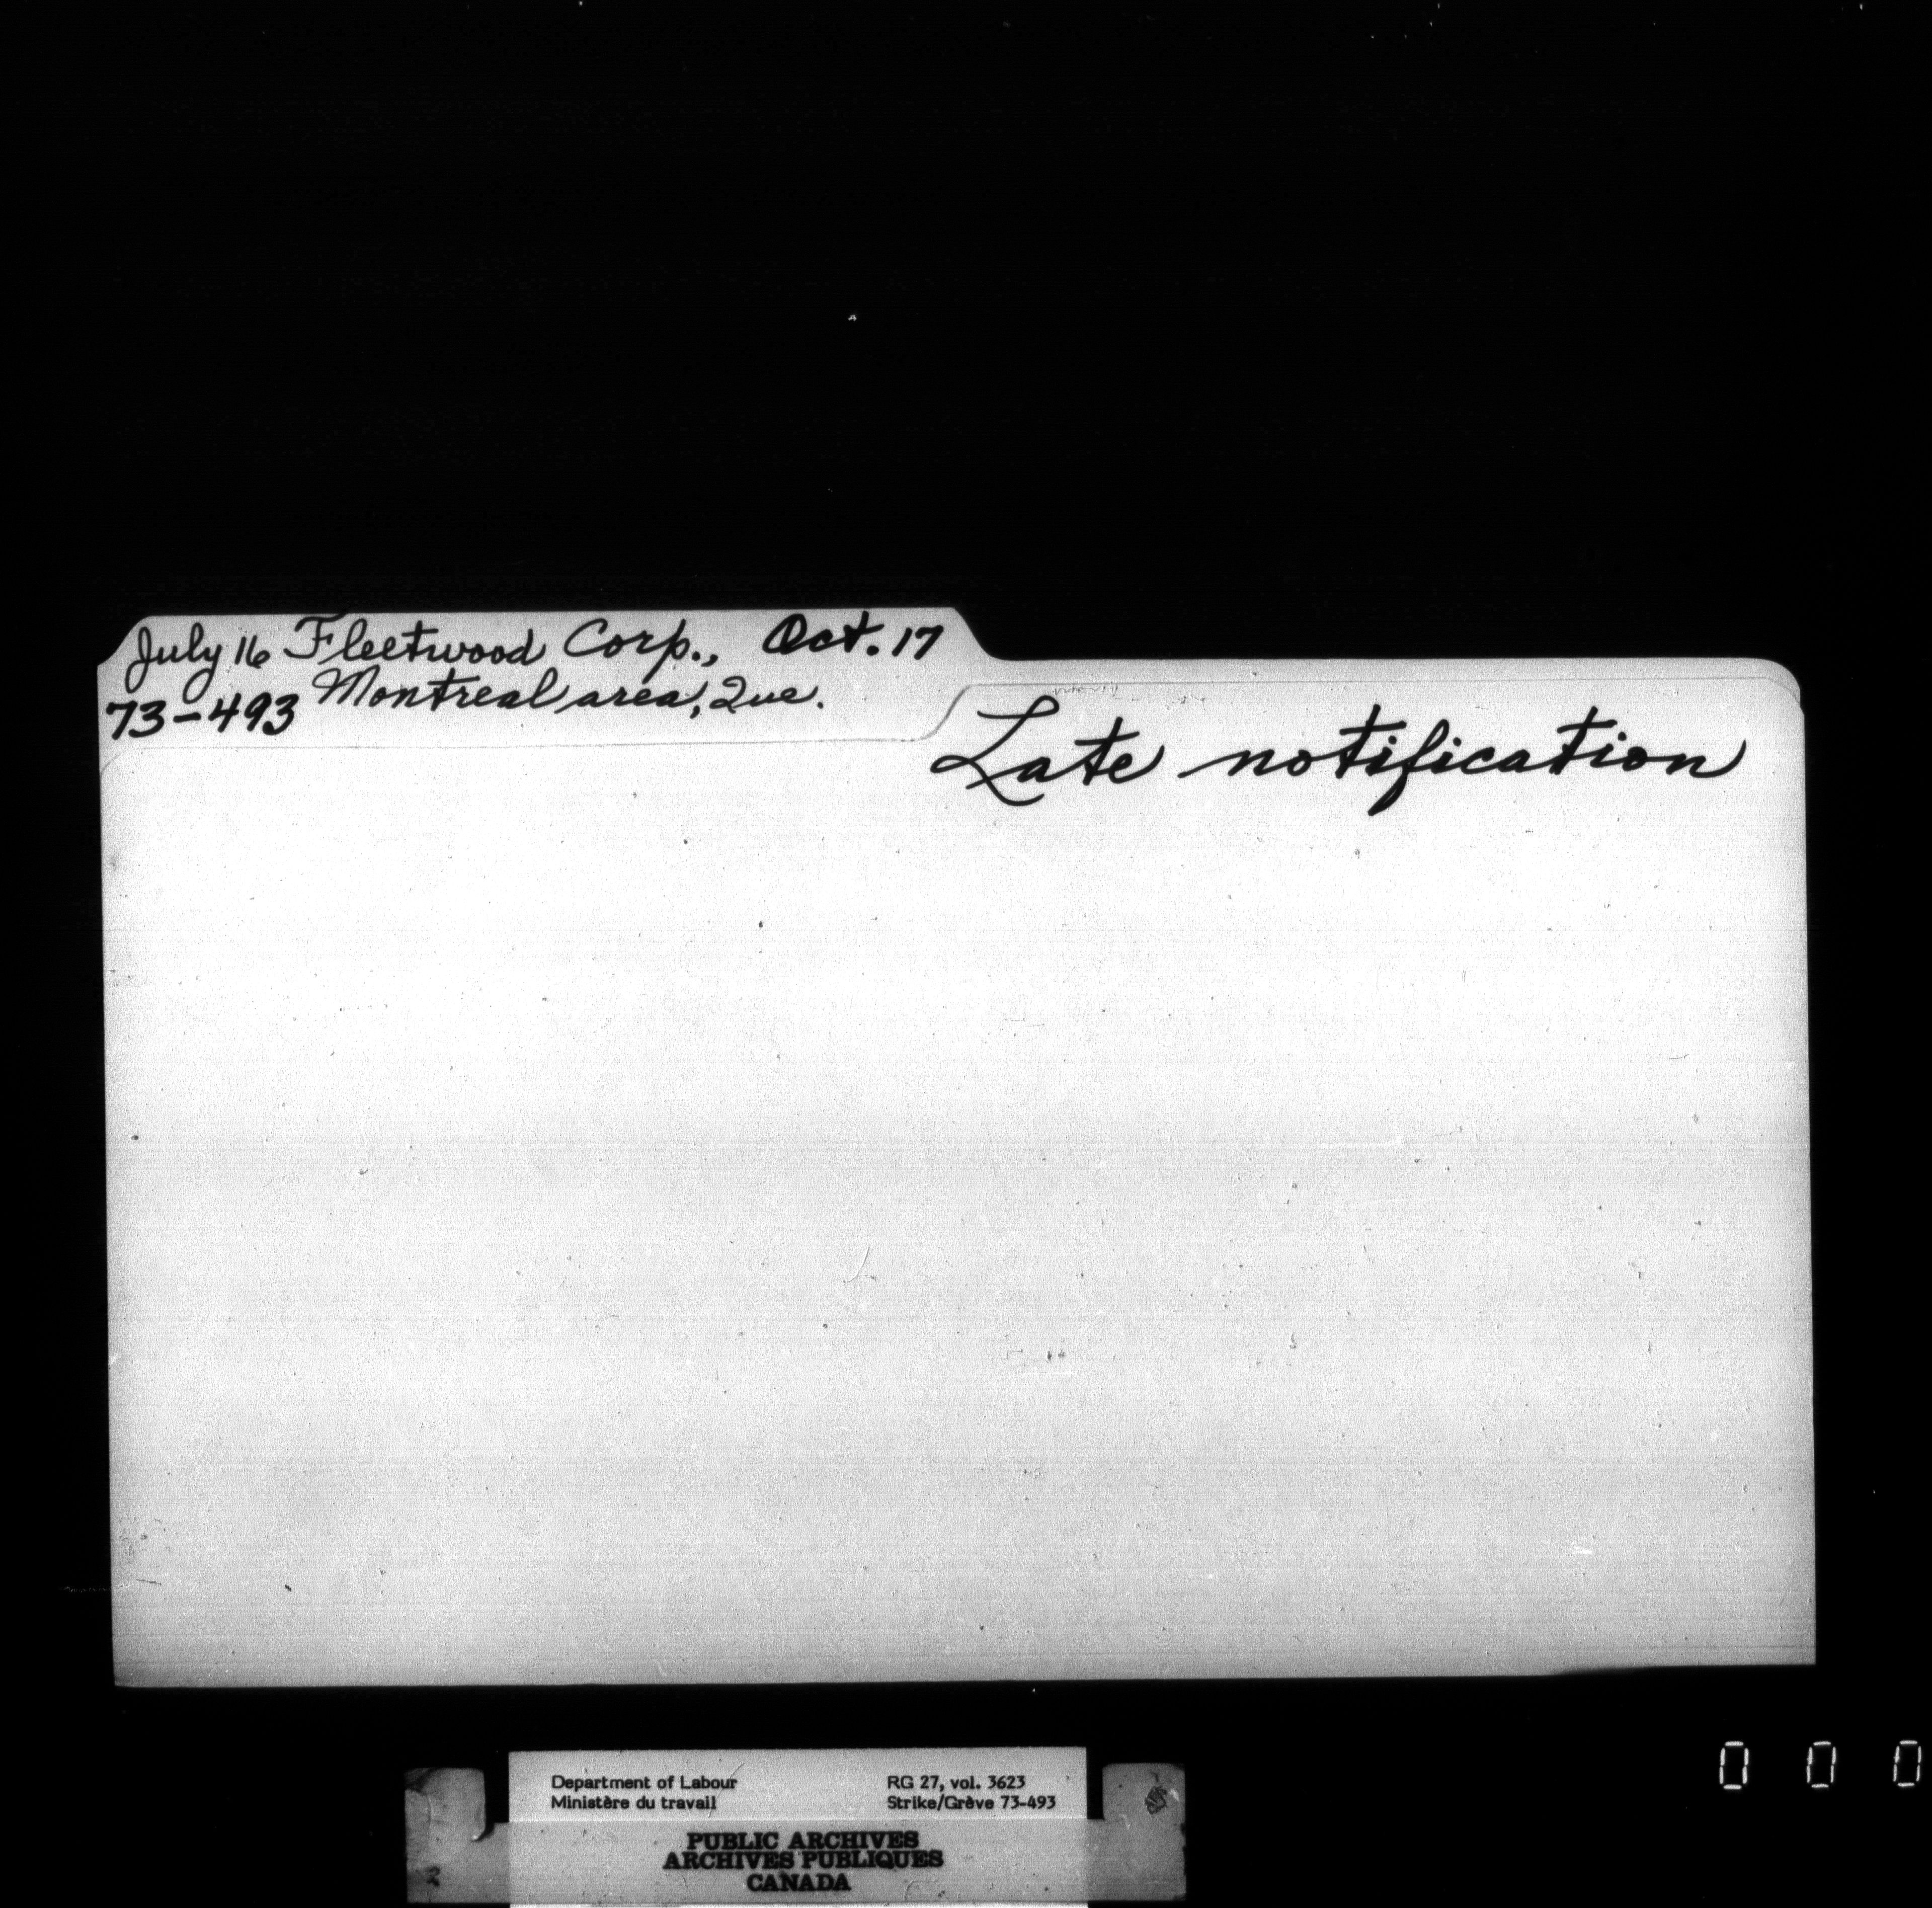 July 16 Fleetwood Corp., Oct. 17
73-493 Montreal area, Que.
Late notification
Department of Labour
Ministère du travail
RG 27, vol. 3623
Strike/Grève 73-493
PUBLIC ARCHIVES
ARCHIVES PUBLIQUES
CANADA
2
0 0 0